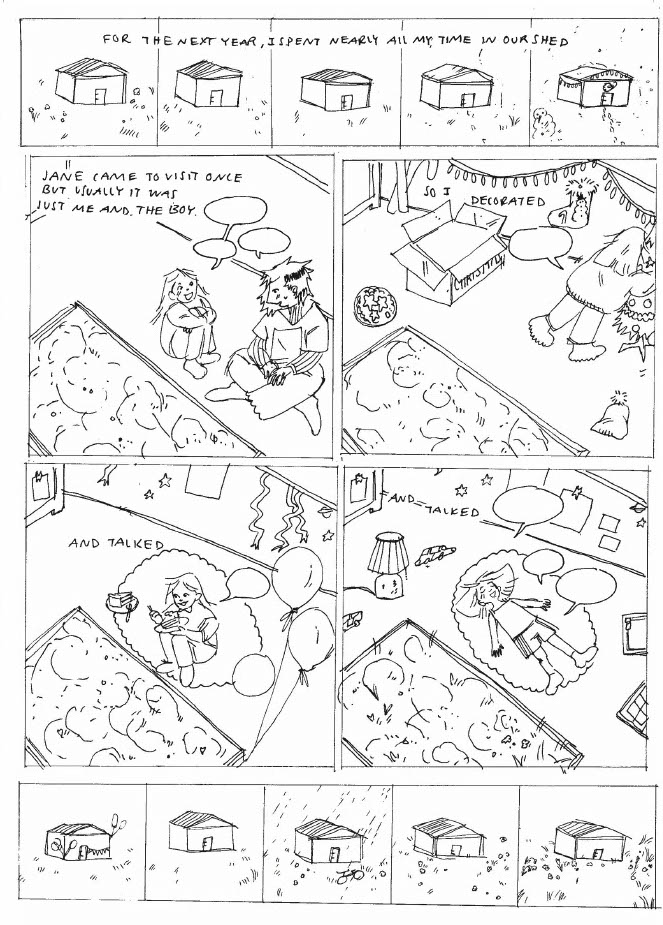 FOR THE NEXT YEAR, I SPENT NEARLY All MY TIME IN OUR SHED
JANE CAME TO VISIT ONCE
BUT USUALLY IT WAS
JUST ME AND THE BOY.
SO I
DECORATED
CHRISTMAS
AND TALKED
AND
TALKED